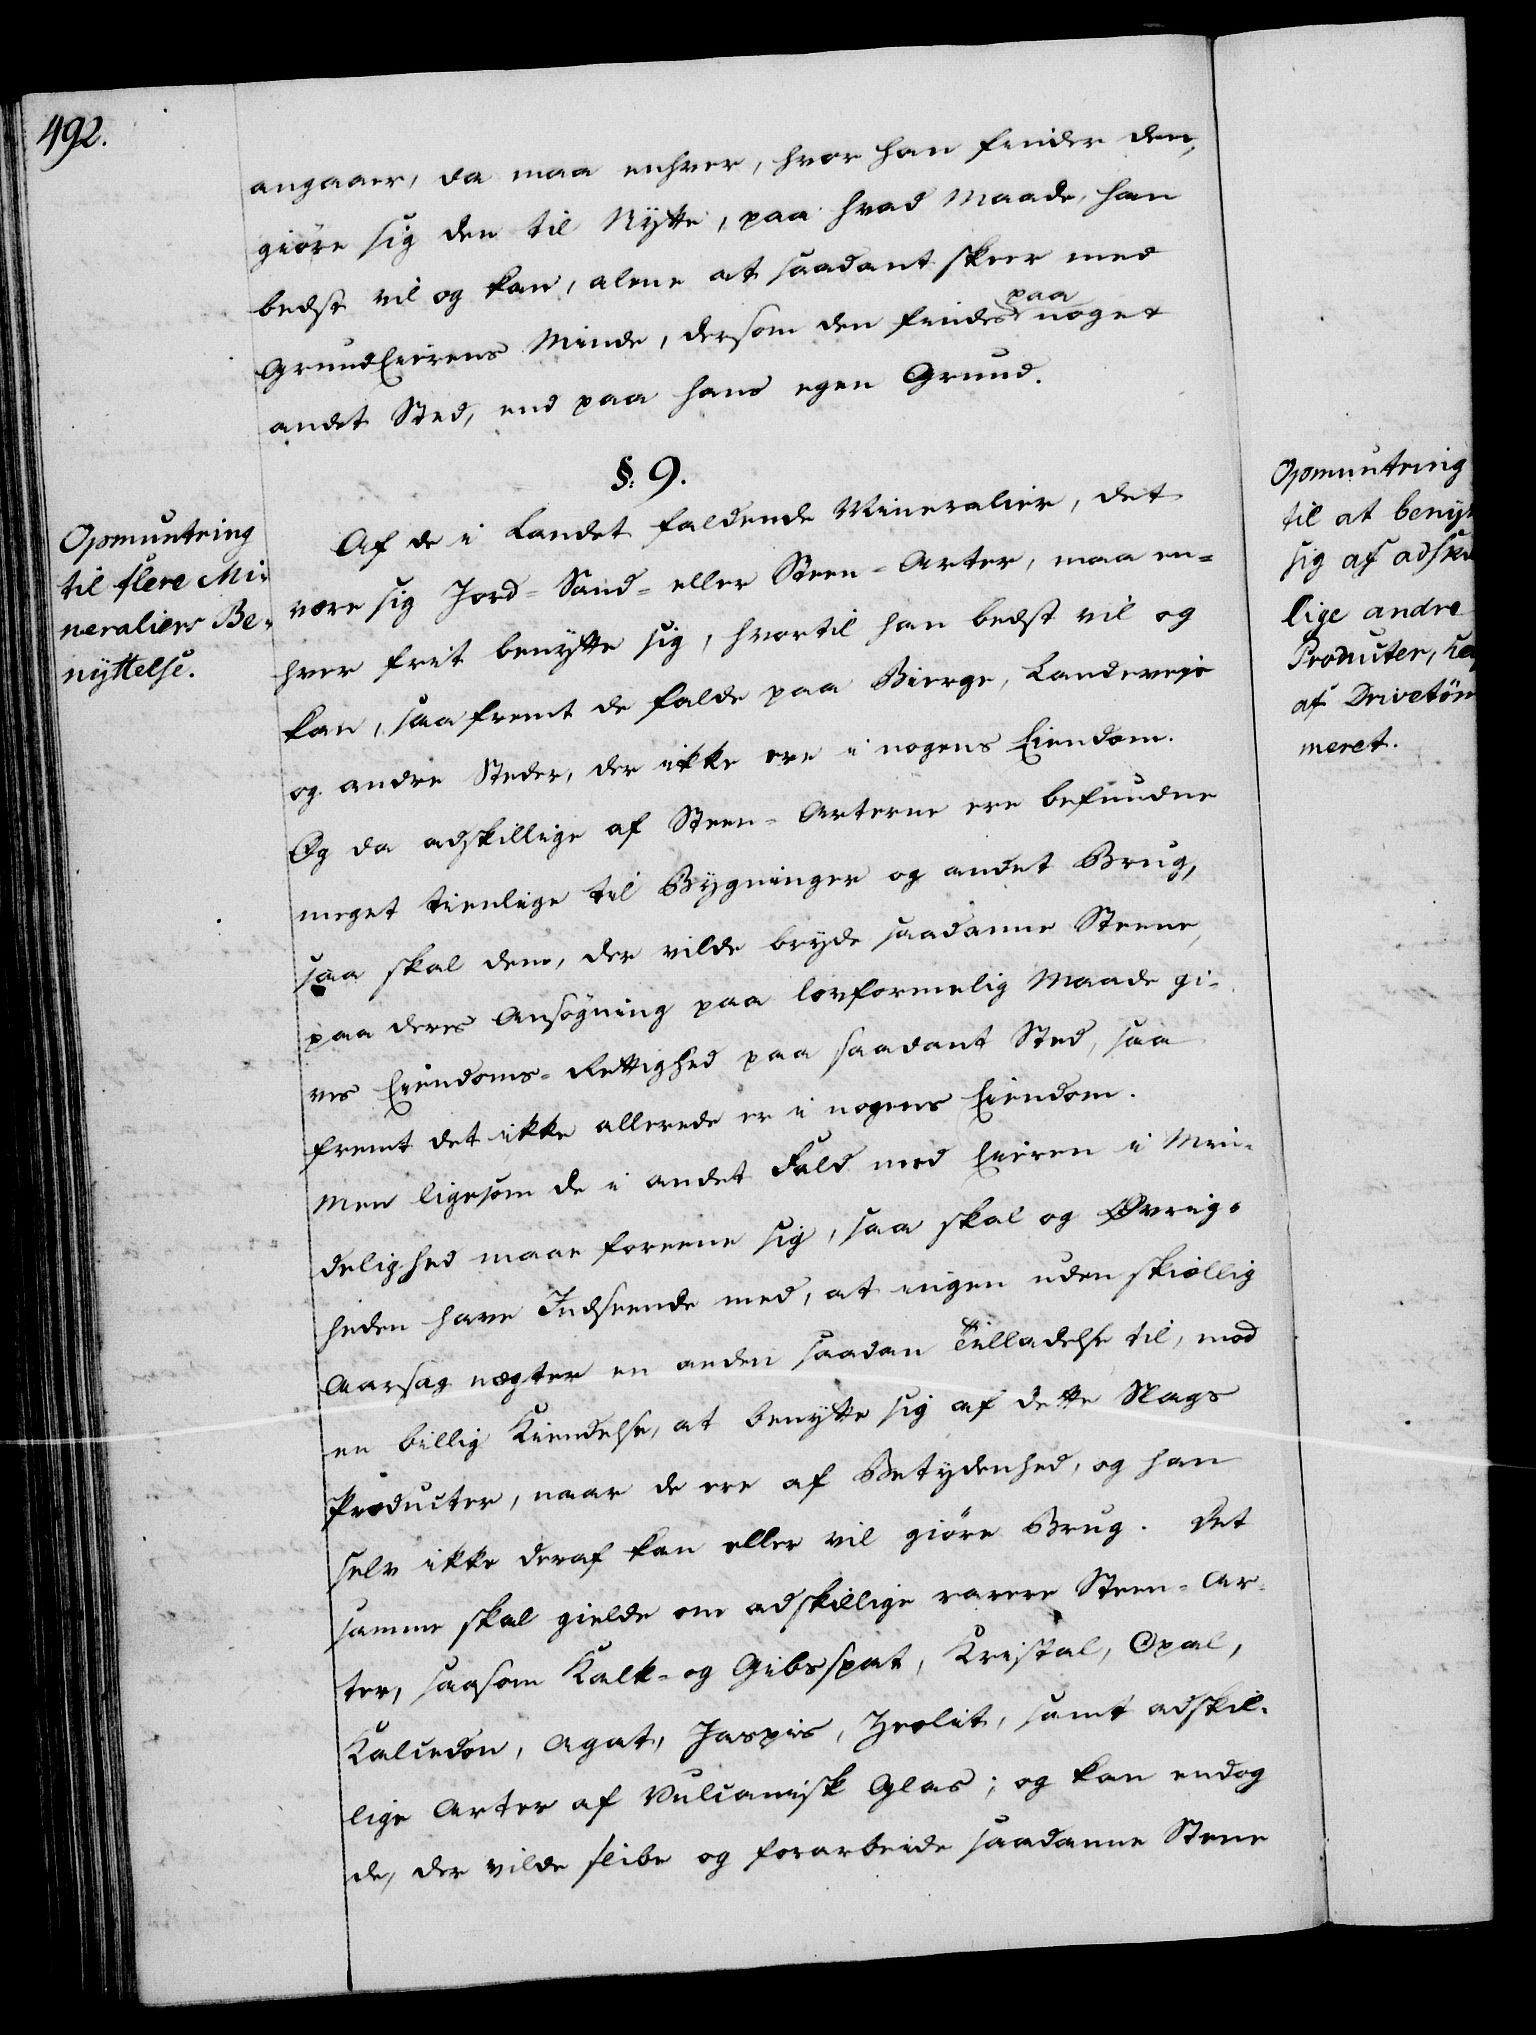 492.
angaaer, da maa enhver, hvor han finder den,
giöre sig den til Nytte, paa hvad Maade, han
bedst vil og kan, alene at saadant skeer med
GrundEierens Minde, dersom den findes paa noget
andet Sted, end paa hans egen Grund.
§. 9.
Opmuntring
til flere Mi-
neraliers Be-
nyttelse.
Af de i Landet faldende Mineralier, det
være sig Jord- Sand- eller Steen-Arter, maa en-
hver frit benytte sig, hvortil han bedst vil og
kan, saafremt de falde paa Bierge, Landeveje
og andre Steder, der ikke ere i nogens Eiendom.
Og da adskillige af Steen-Arterne ere befundne
meget tienlige til Bygninger og andet Brug,
saa skal dem, der vilde bryde saadanne Steene,
paa deres Ansögning paa lovformelig Maade gi-
ves Eiendoms-Rettighed paa saadant Sted, saa
fremt det ikke allerede er i nogens Eiendom.
Men ligesom de i andet Fald med Eieren i Min-
delighed maae foreene sig, saa skal og Øvrig-
heden have Indseende med, at ingen uden skiællig
Aarsag nægter en anden saadan Tilladelse til, mod
en billig Kiendelse, at benytte sig af dette Slags
Producter, naar de ere af Betydenhed, og han
selv ikke deraf kan eller vil giöre Brug. Det
samme skal gielde om adskillige rarere Steen-Ar-
ter, saasom Kalk- og Gibsspat, Kristal, Opal,
Kalcedon, Agat, Jaspis, Zeolit, samt adskil-
lige Arter af Vulcanisk Glas; og kan endog
de, der vilde slibe og forarbeide saadanne Stene
Opmuntring
til at beny
sig af adski
lige andre
Producter,
af Drivetöm
meret.